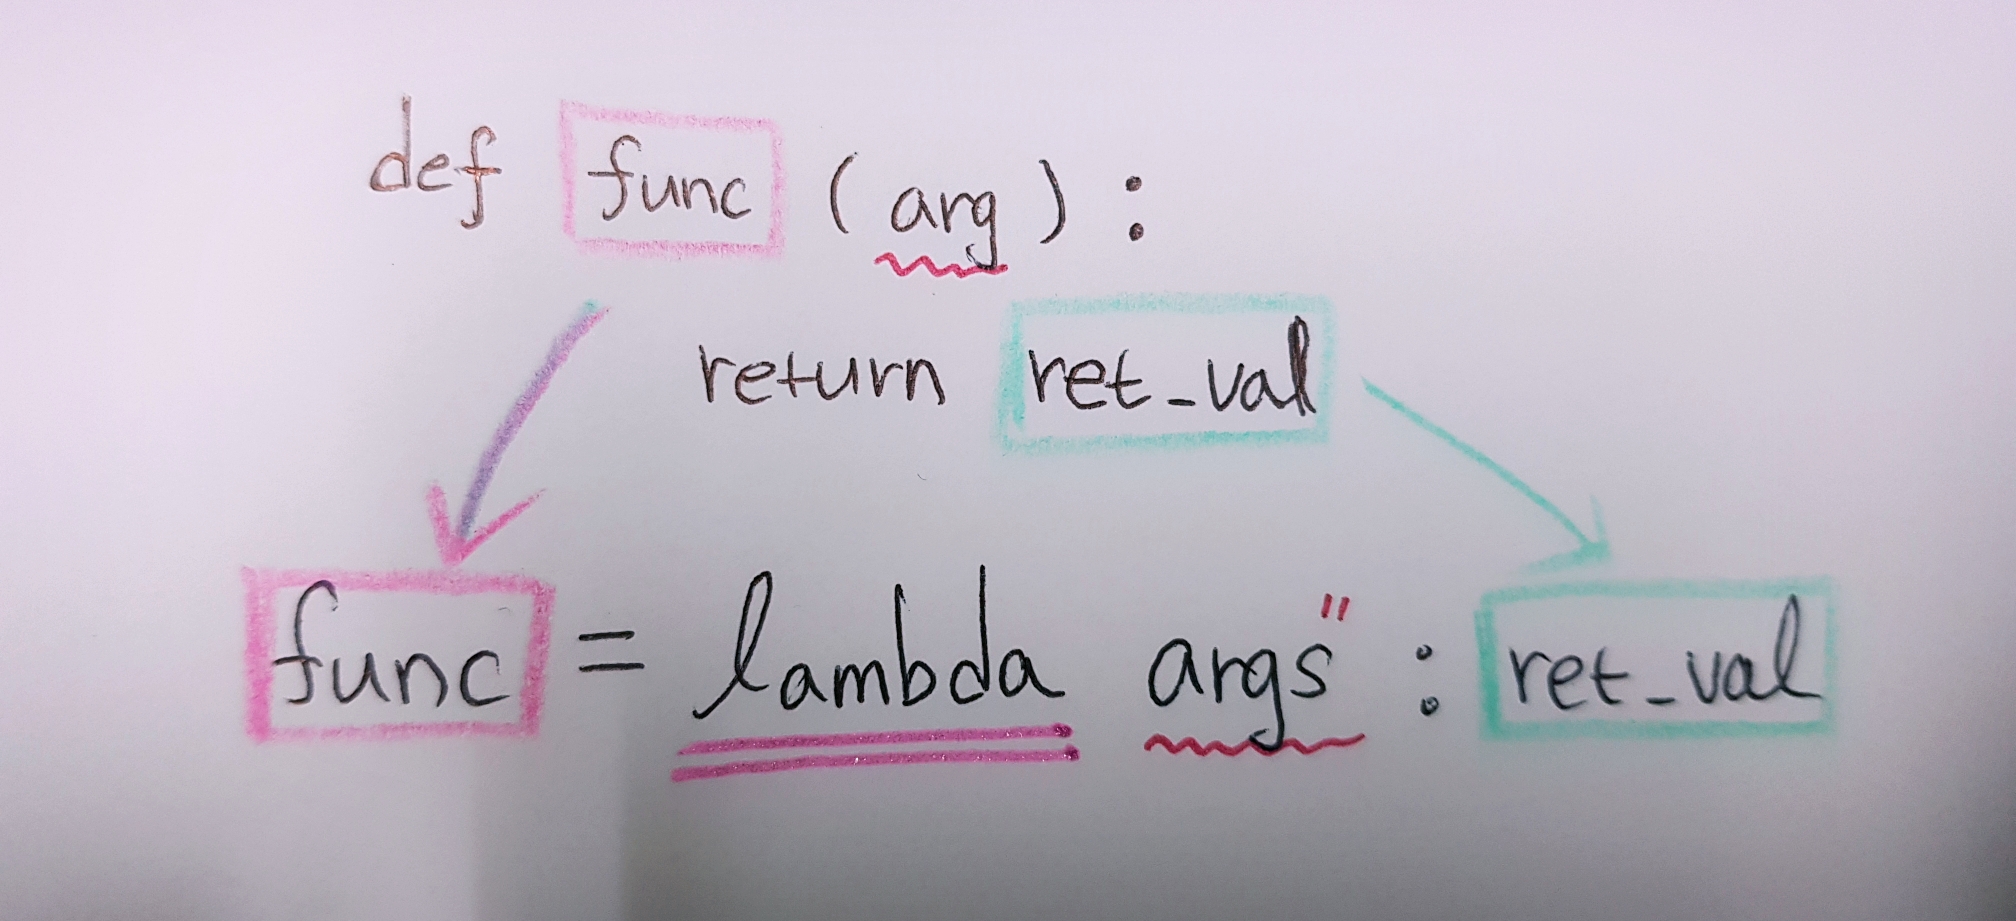 def func (arg) :
return ret_val
func = lambda args" : ret_val